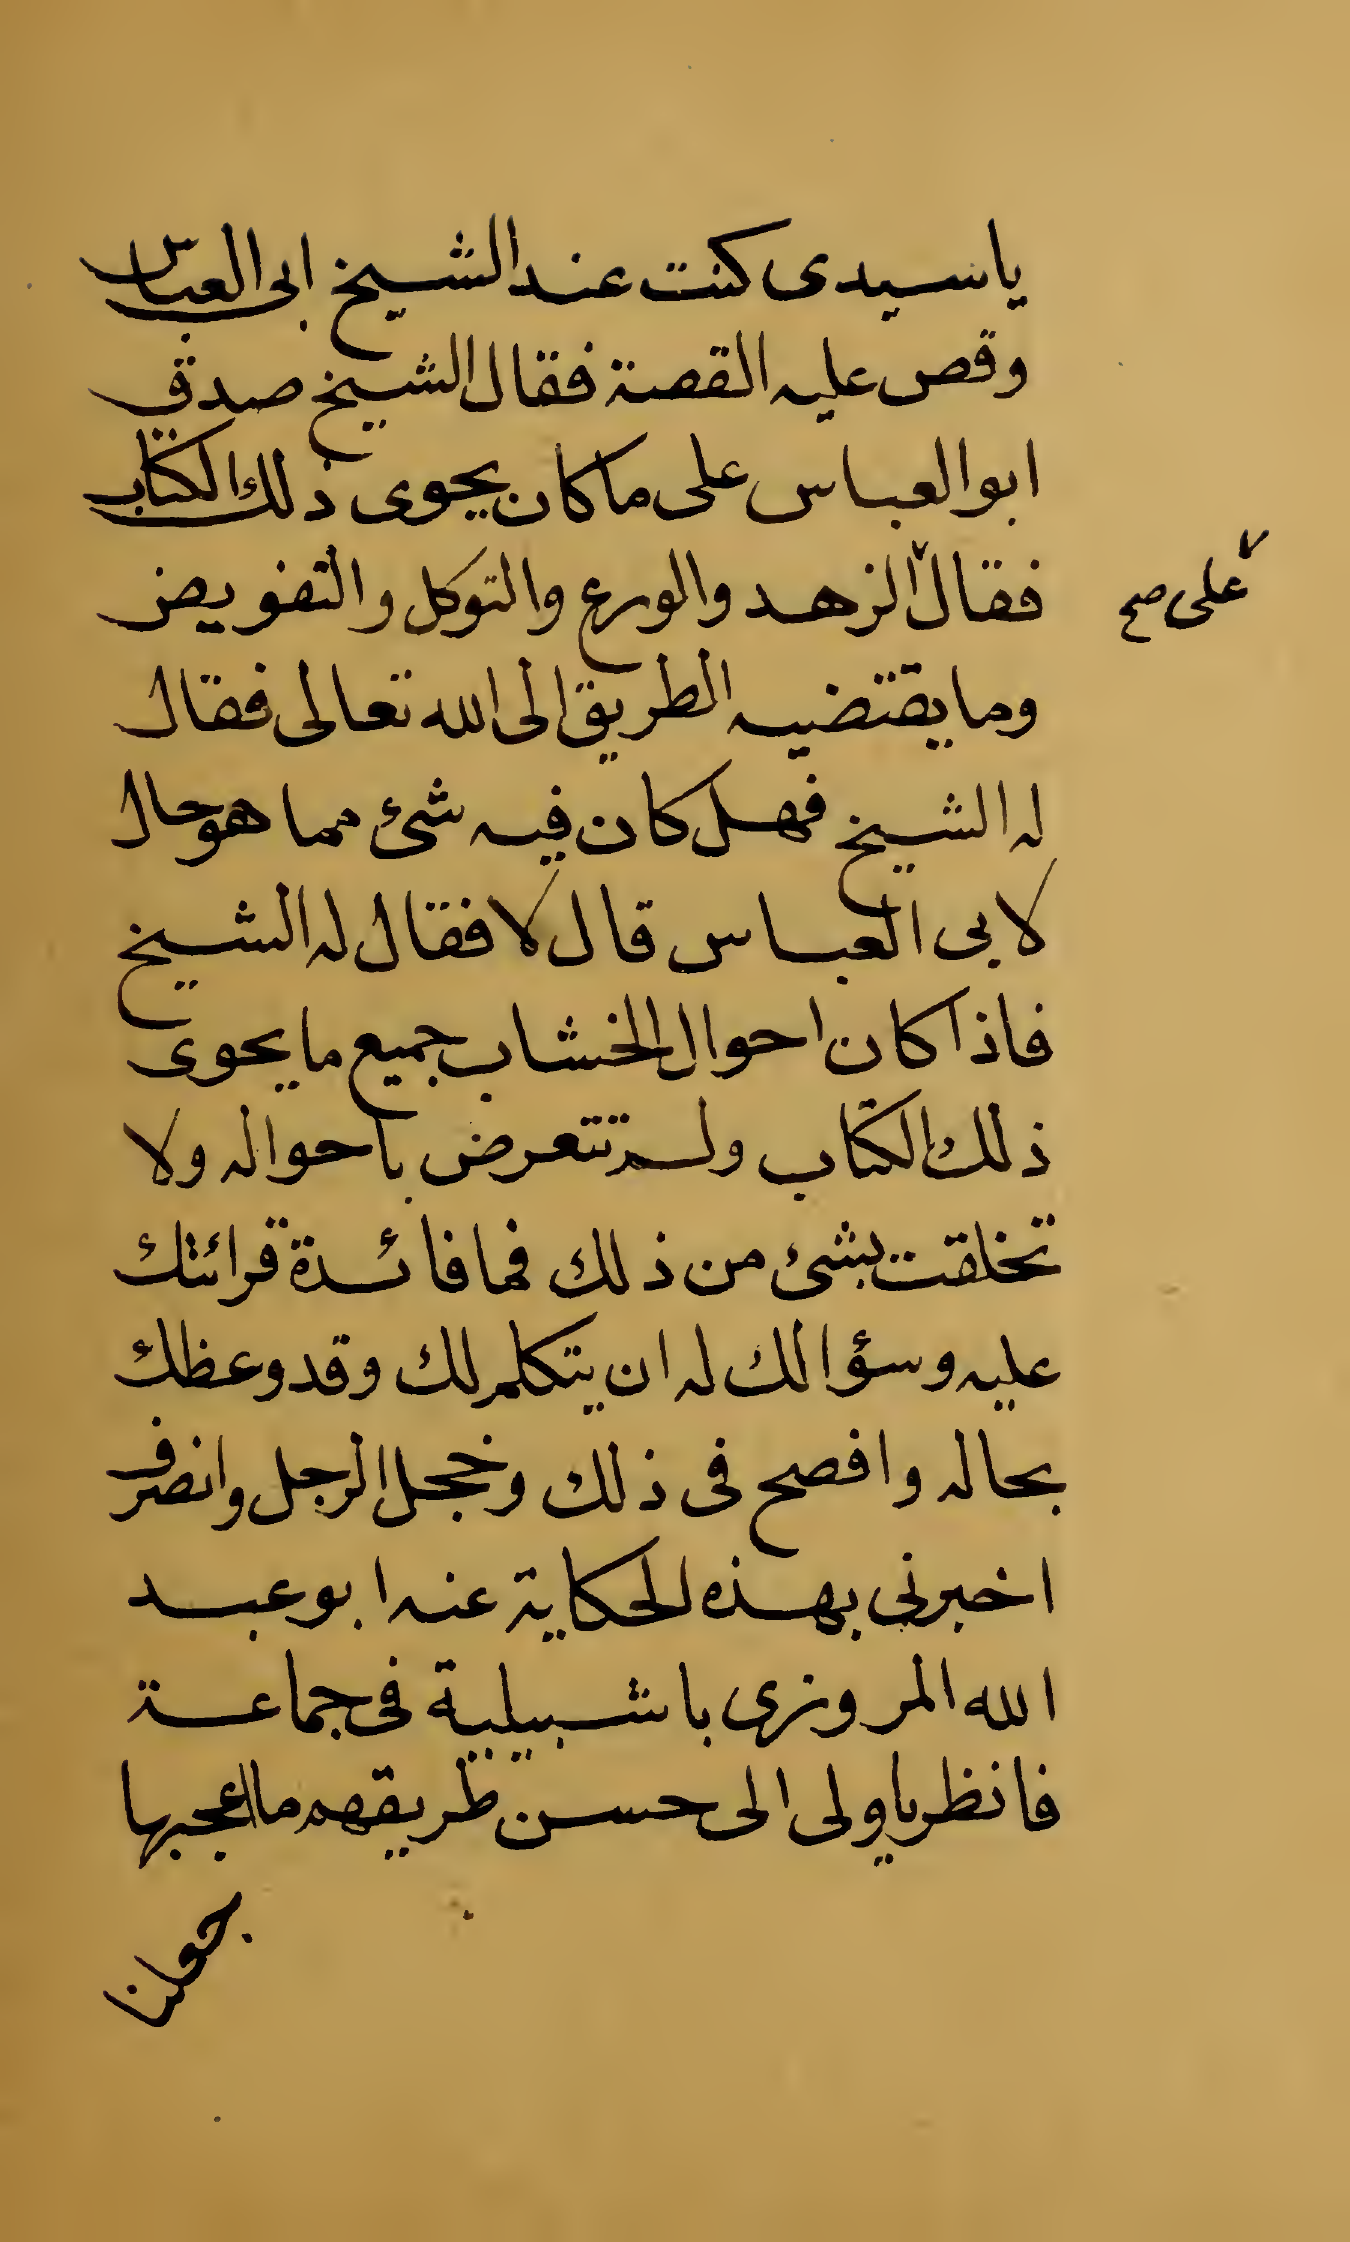 ياسيدى كنت عند الشيخ ابى العباس
وقص عليه القصة فقال الشيخ صدق
ابو العباس على ماكان يحوى ذلك الكتاب
فقال الزهد والورع والتوكل والتفويض
على صح
وما يقتضيه الطريق الى الله تعالى فقال
له الشيخ فهل كان فيه شئ مما هو حال
لابى العباس قال لا فقال له الشيخ
فاذا كان احوال الخشاب جميع ما يحوى
ذلك الكتاب ولم تتعرض باحواله ولا
تخلقت بشئ من ذلك فما فائدة قرائتك
عليه وسؤالك له ان يتكلم لك وقد وعظك
بحاله وافصح فى ذلك وخجل الرجل وانصرف
اخبرنى بهذه الحكاية عنه ابو عبد
الله المروزى باشبيلية فى جماعة
فانظر ياولى الى حسن طريقهم ما اعجبها
جعلنا